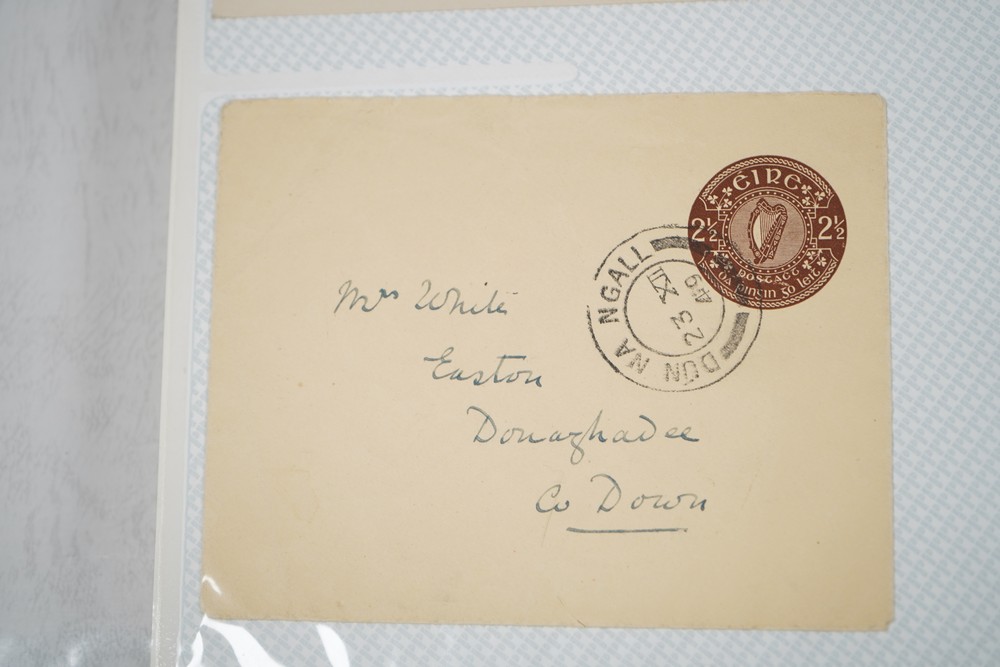 ÉIRE
2½ 2½
POSTAGE
DÁ PINGIN GO LEIT
DÚN NA NGALL
23 XII 49
Mrs White
Easton
Donaghadee
Co Down